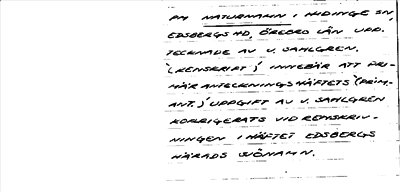 PM NATURNAMN I HIDINGE SN,
EDSBERGS HD, ÖREBRO LÄN UPP-
TECKNADE AV V. SAHLGREN.
"(RENSKRIFT)" INNEBÄR ATT PRI-
MÄRANTECKNINGSHÄFTETS "(PRIM.
ANT.)" UPPGIFT AV V. SAHLGREN
KORRIGERATS VID RENSKRIV-
NINGEN I HÄFTET EDSBERGS
HÄRADS SJÖNAMN.